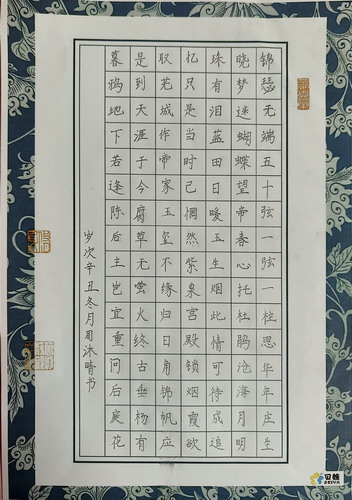 锦瑟无端五十弦一弦一柱思华年庄生
晓梦迷蝴蝶望帝春心托杜鹃沧海月明
珠有泪蓝田日暖玉生烟此情可待成追
忆只是当时已惘然紫泉宫殿锁烟霞欲
取芜城作帝家玉玺不缘归日角锦帆应
是到天涯于今腐草无萤火终古垂杨有
暮鸦地下若逢陈后主岂宜重问后庭花
岁次辛丑冬月周沐晴书